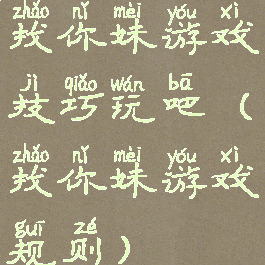 zhǎo nǐ mèi yóu xì
找你妹游戏
jì qiǎo wán bā
技巧玩吧（
zhǎo nǐ mèi yóu xì
找你妹游戏
guī zé
规则）